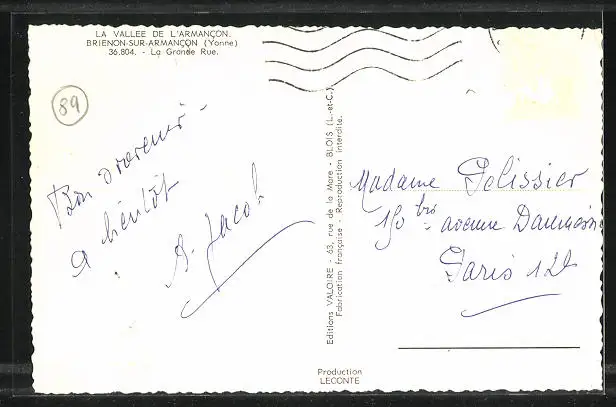 LA VALLEE DE L'ARMANÇON.
BRIENON-SUR-ARMANÇON (Yonne)
36.804. - La Grande Rue.
89
Bon souvenir
A bientôt
A. Jacob
Editions VALOIRE - 63, rue de la Mare - BLOIS (L.-et-C.)
Fabrication française - Reproduction interdite.
Madame Pelissier
150 bis avenue Daumesnil
Paris 12e
Production
LECONTE